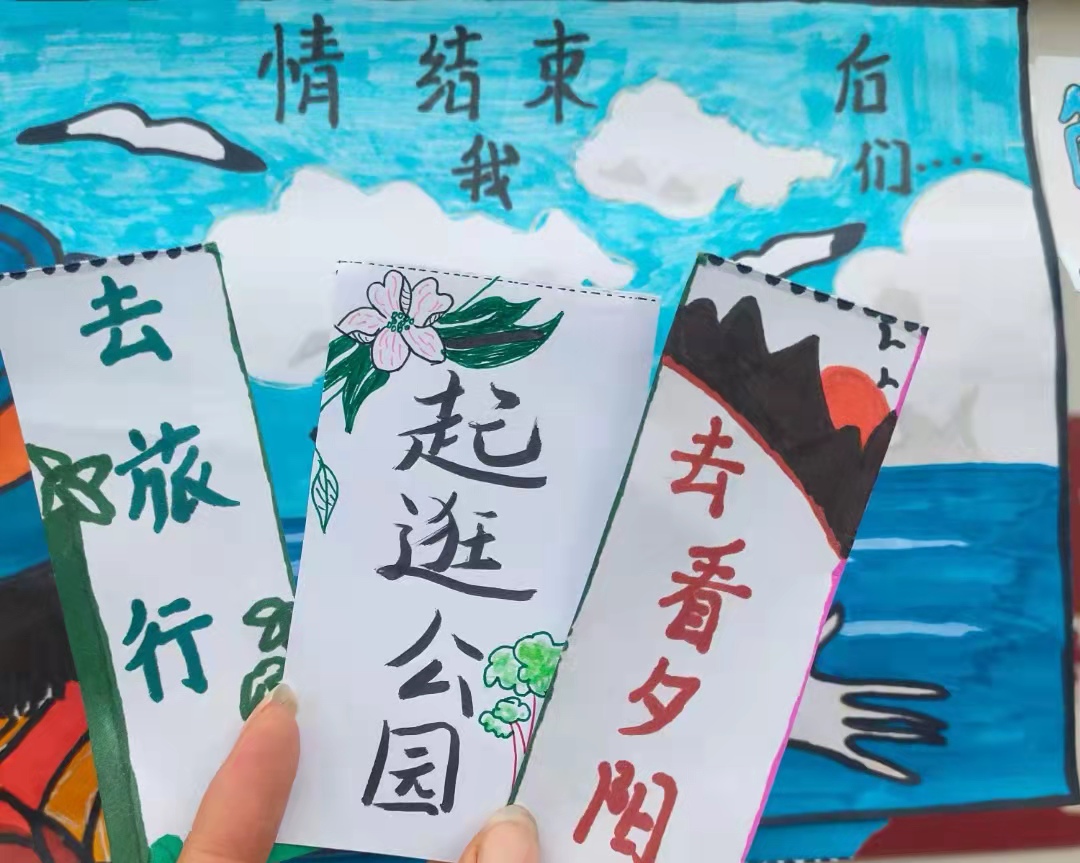 情结束后
我们……
去旅行
起逛公园
去看夕阳